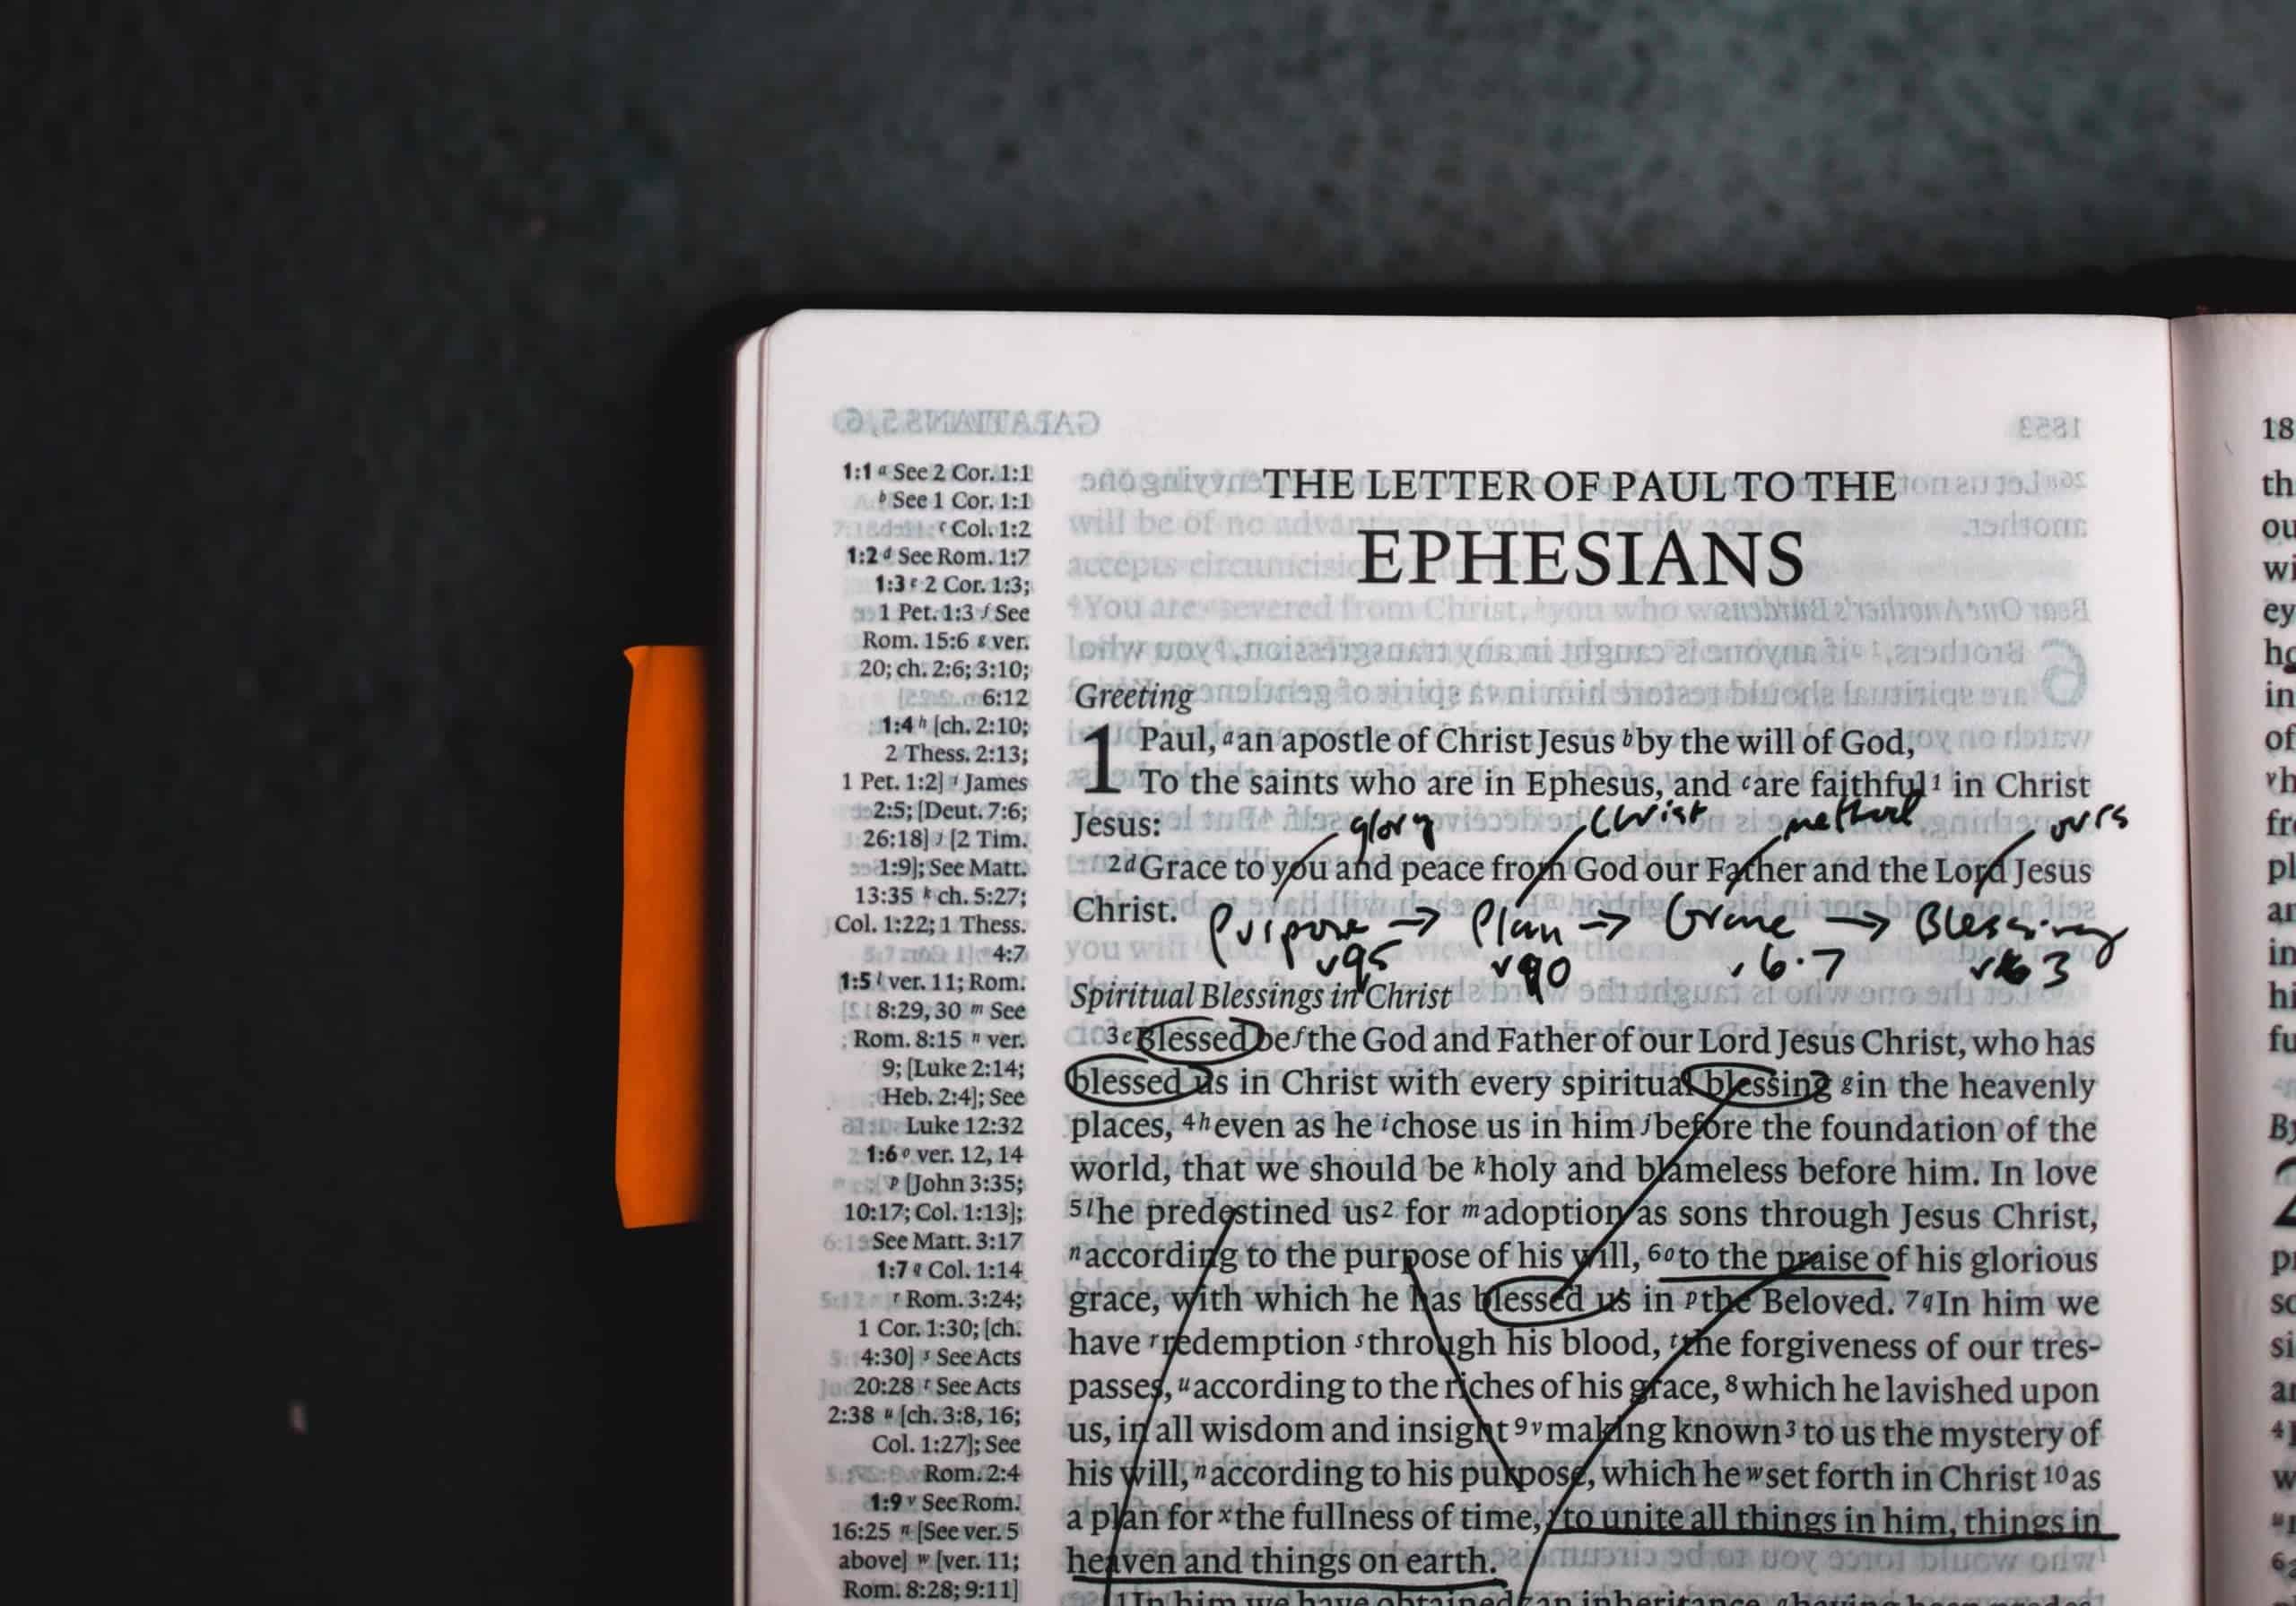 1:1 a See 2 Cor. 1:1
b See 1 Cor. 1:1
c Col. 1:2
1:2 d See Rom. 1:7
1:3 e 2 Cor. 1:3;
1 Pet. 1:3 f See
Rom. 15:6 g ver.
20; ch. 2:6; 3:10;
6:12
1:4 h [ch. 2:10;
2 Thess. 2:13;
1 Pet. 1:2] i James
2:5; [Deut. 7:6;
26:18] j [2 Tim.
1:9]; See Matt.
13:35 k ch. 5:27;
Col. 1:22; 1 Thess.
4:7
1:5 l ver. 11; Rom.
8:29, 30 m See
Rom. 8:15 n ver.
9; [Luke 2:14;
Heb. 2:4]; See
Luke 12:32
1:6 o ver. 12, 14
p [John 3:35;
10:17; Col. 1:13];
See Matt. 3:17
1:7 q Col. 1:14
r Rom. 3:24;
1 Cor. 1:30; [ch.
4:30] s See Acts
20:28 t See Acts
2:38 u [ch. 3:8, 16;
Col. 1:27]; See
Rom. 2:4
1:9 v See Rom.
16:25 n [See ver. 5
above] w [ver. 11;
Rom. 8:28; 9:11]
THE LETTER OF PAUL TO THE
EPHESIANS
Greeting
1 Paul, a an apostle of Christ Jesus b by the will of God,
To the saints who are in Ephesus, and c are faithful 1 in Christ
Jesus:
glory Christ method ours
2 d Grace to you and peace from God our Father and the Lord Jesus
Christ.
Purpose → Plan → Grace → Blessing
v. 6.7
Spiritual Blessings in Christ
3 e Blessed be f the God and Father of our Lord Jesus Christ, who has
blessed us in Christ with every spiritual blessing g in the heavenly
places, 4 h even as he i chose us in him j before the foundation of the
world, that we should be k holy and blameless before him. In love
5 l he predestined us 2 for m adoption as sons through Jesus Christ,
n according to the purpose of his will, 6 o to the praise of his glorious
grace, with which he has blessed us in p the Beloved. 7 q In him we
have r redemption s through his blood, t the forgiveness of our tres-
passes, u according to the riches of his grace, 8 which he lavished upon
us, in all wisdom and insight 9 v making known 3 to us the mystery of
his will, n according to his purpose, which he w set forth in Christ 10 as
a plan for x the fullness of time, y to unite all things in him, things in
heaven and things on earth.
In him we have obtained an inheritance,